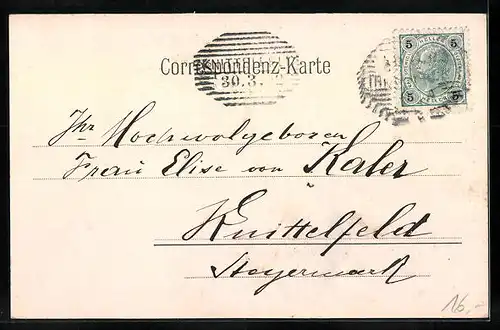 Correspondenz-Karte
30.3.
5 5
5 5
Ihr Hochwolgeboren
Frau Elise von Kaler
Knittelfeld
Steyermark
16,-